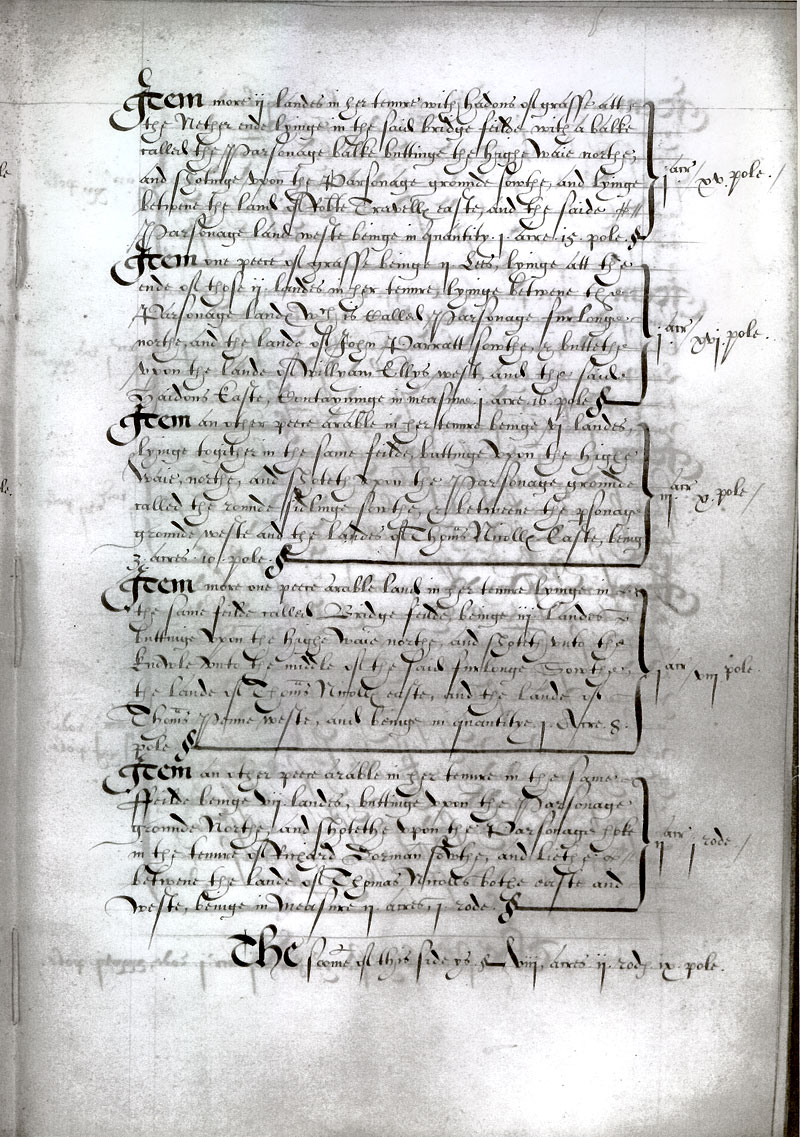 Item more ij landes in her tenure with hadons of grasse att
the Nether ende lyinge in the said bridge feilde with a balke
called the Parsonage balke buttinge the highe waie northe,
and shotinge vpon the Parsonage grounde sowthe, and lyinge j acr xv pole
betwene the land of Robte Travell easte, and the saide
Parsonage land weste beinge in quantity .j. acre .15. pole
Item one peece of grasse beinge ij Lees, lyinge att the
ende of those ij landes in her tenure, lyinge betwene the
Parsonage land, wch is called Parsonage furlonge
northe, and the lande of John Parratt sowthe, & buttethe j acr xvj pole
vpon the lande of Willyam Ellys west, and the saide
Haidons Easte, Contayninge in measure j acre 16 pole
Item an other peece arable in her tenure beinge vj landes,
lyinge togither in the same feilde, buttinge vpon the highe
waie, northe, and shoteth vpon the Parsonage grounde iij acr x pole
called the rounde sidlinge sowthe, & betweene the psonage
grounde weste and the landes of Thoms Nicolls Easte, being
3 acres 10 pole
Item more one peece arable land in her tenure lyinge in
the same feilde called Bridge feilde, beinge iij Landes
buttinge vpon the highe waie northe, and shoteth vnto the
knowle vnto the middle of the said furlonge Sowthe, j acr viij pole
the lande of Thoms Nicolls easte, and the lande of
Thoms Penne weste, and beinge in quantitye j Acre 8
pole
Item an other peece arable in her tenure in the same
ffeilde beinge vij landes, buttinge vpon the Parsonage
grounde Northe, and shotethe vpon the Parsonage hole
in the tenure of Richard Dorman sowthe, and liethe ij acr j rode
betwene the lande of Thomas Nicolls bothe easte and
weste, beinge in Measure ij acres j rode
The some of this side ys viij acres ij rod ix pole